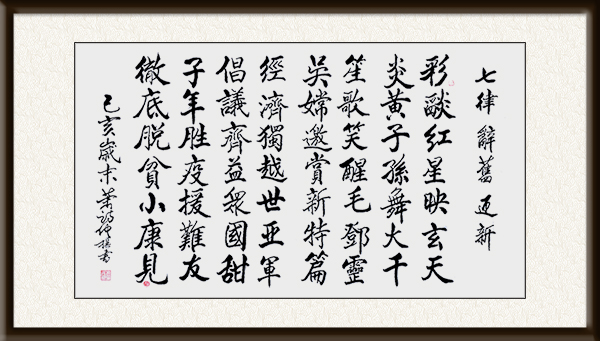 七律 辭舊迎新
彩燄紅星映玄天
炎黃子孫舞大千
笙歌笑醒毛鄧靈
吳嫦邀賞新特篇
經濟獨越世亞軍
倡議齊益衆國甜
子年胜疫援難友
徹底脫貧小康見
己亥歲末蕭書